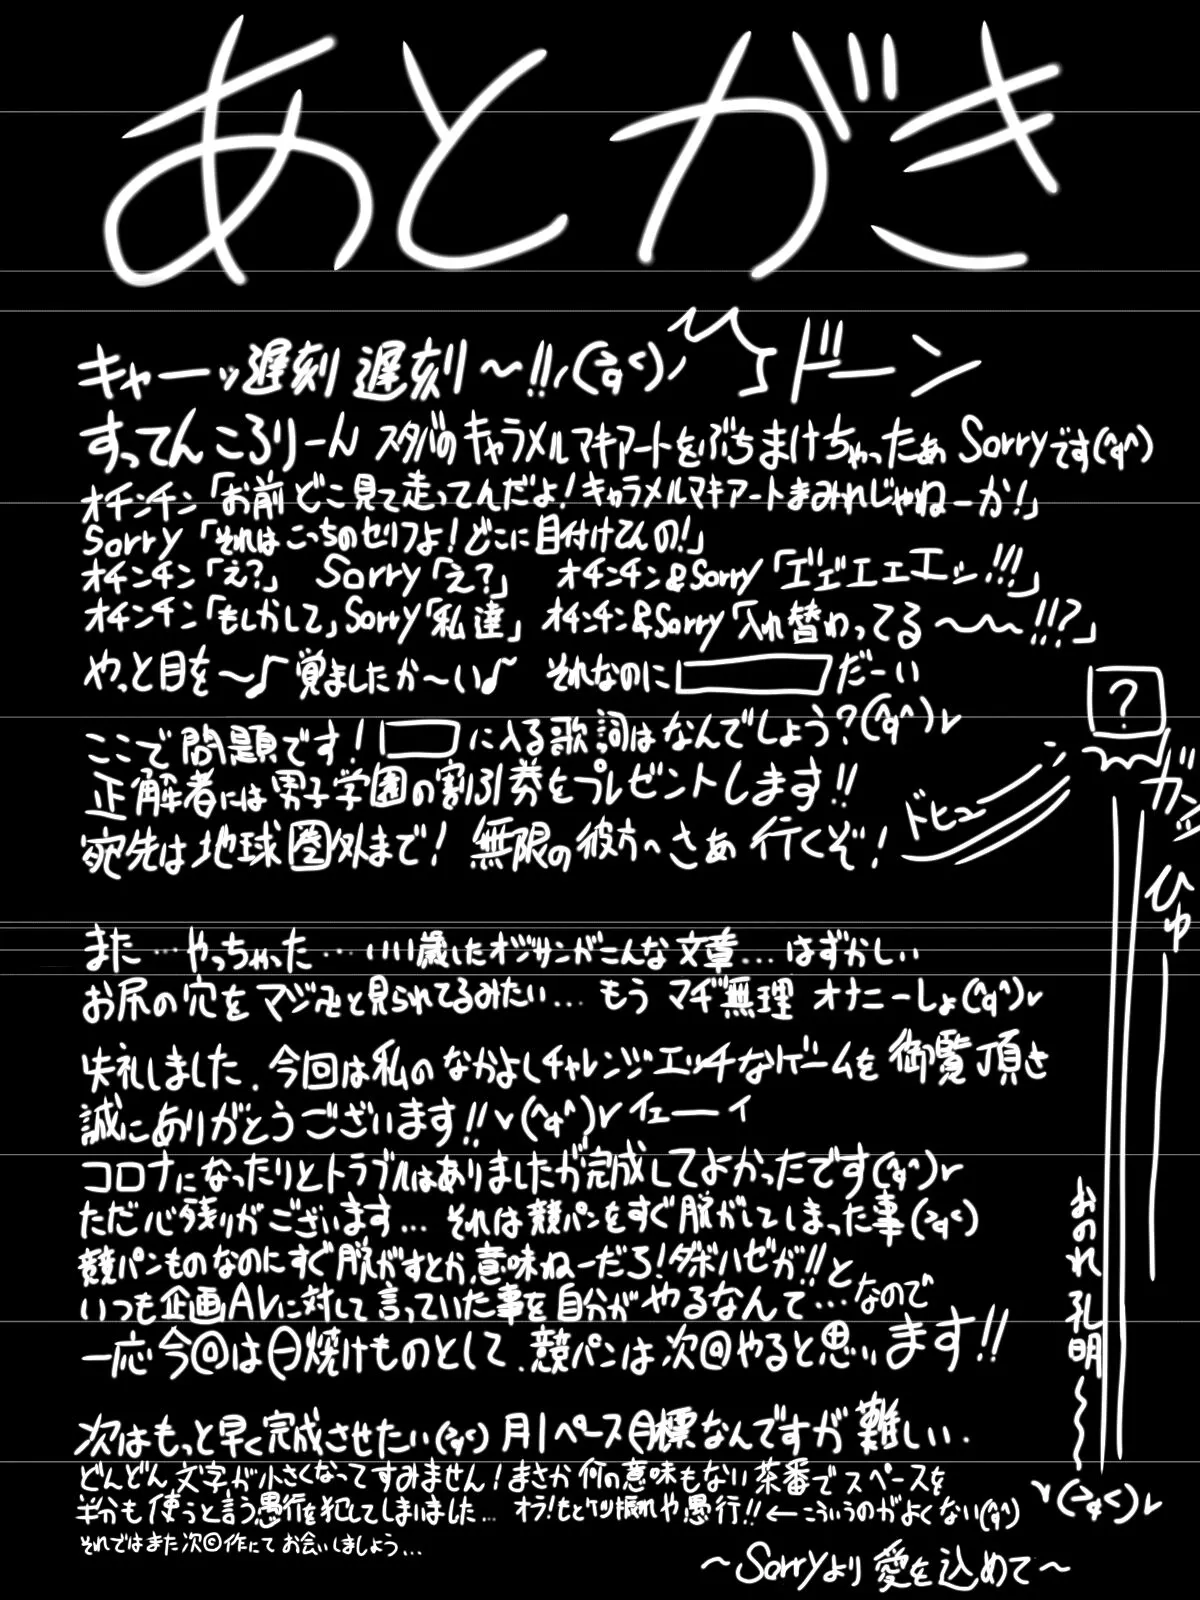 あとがき
キャーッ遅刻遅刻～!!,(>q<),
ドーン
すってんころりーん スタバのキャラメルマキアートをぶちまけちゃったぁ Sorryです(^q^)
オチンチン「お前どこ見て走ってんだよ!キャラメルマキアートまみれじゃねーか!」
Sorry「それはこっちのセリフよ!どこに目付けてんの!」
オチンチン「え?」 Sorry「え?」 オチンチン&Sorry「エ゛エ゛エェエッ!!!」
オチンチン「もしかして」Sorry「私達」 オチンチン&Sorry「入れ替わってる～～!!?」
やっと目を～♪覚ましたか～い♪ それなのに□だーい
ここで問題です!□に入る歌詞はなんでしょう?(^q^)v
正解者には男子学園の割引券をプレゼントします!!
宛先は地球圏外まで! 無限の彼方へさぁ行くぞ!
ドヒュー
?
ガンッ
ひゅ
おのれ孔明～～
v(>q<)v
また…やっちゃった…いい歳したオジサンがこんな文章…はずかしい
お尻の穴をマジマジと見られてるみたい…もう マヂ無理 オナニーしょ(^q^)v
失礼しました.今回は私のなかよしチャレンジ エッチなゲームを御覧頂き
誠にありがとうございます!!v(^q^)vイェーーイ
コロナになったりとトラブルはありましたが完成してよかったです(^q^)v
ただ心残りがございます…それは競パンをすぐ脱がしてしまった事(>q<)
競パンものなのにすぐ脱がすとか,意味ねーだろ!ダボハゼが!!と
いつも企画AVに対して言っていた事を自分がやるなんて…なので
一応今回は日焼けものとして.競パンは次回やると思います!!
次はもっと早く完成させたい(>q<) 月1ペース目標なんですが難しい.
どんどん文字が小さくなってすみません!まさか何の意味もない茶番でスペースを
半分も使うと言う愚行を犯してしまいました… オラ!もとケツ振れや愚行!!←こういうのがよくない(^q^)
それではまた次回作にてお会いしましょう…
～Sorryより愛を込めて～